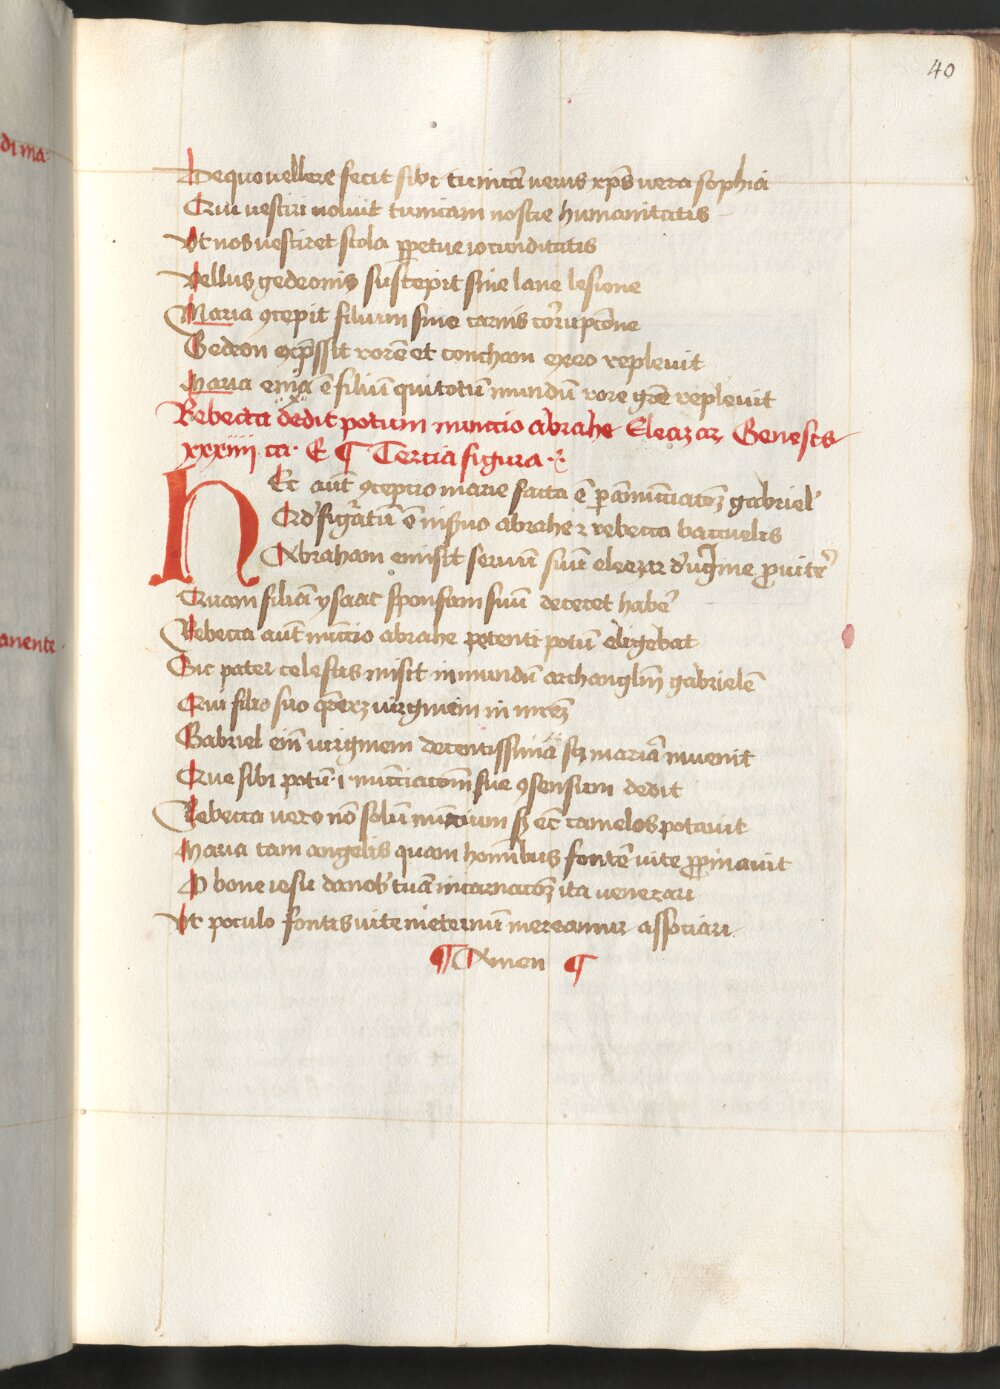 40
di ma·
De quo vellere fecit sibi tunicā verus xp̄s vera sophia
Qui vestiri voluit tunicam nostre humanitatis
Vt nos vestiret stola ꝑpetue iocunditatis
Vellus gedeonis suscepit sine lane lesione
Maria ꝯcepit filium sine carnis corrupcōne
Gedeon exp̄ssit rorē et concham ex eo replevit
Maria eniͣxa ē filiū qui totū mundū rore grē replevit
Rebecca dedit potum nunccio abrahe Eleazar Genesis
xxxiiii ca· E ¶ Tercia figura·
HEc autē ꝯcepcio marie facta ē ꝑ annuncciacōꝫ gabriel'
Qd' figͣratū ē in ẜuo abrahe ⁊ rebecca batuelis
Abraham emisit servū suū eleezar d' vgīne ꝓvitē'
Quam filiā ysaac sponsam suū deceret habē'
Rebecca autē nunccio abrahe petenti potū elargebat
anente·
Sic pater celestis misit in mundū archanglm̄ gabrielē
Qui filio suo q̄reret virginem in mr̄eꝫ
Gabriel em̄ virginem decentissimā scꝫ mariā invenit
Que sibi potū ·i· nuncciacōm̄ sue ꝯsensum dedit
Rebecca vero nō solū nunccium sꝫ ec̄ camelos potavit
Maria tam angelis quam hom̄ibus fontē vite ꝓpinavit
O bone iesu da nob' tuā incarnacōꝫ ita venerari
Vt poculo fontis vite in eternū mereamur associari
¶ Amen ¶